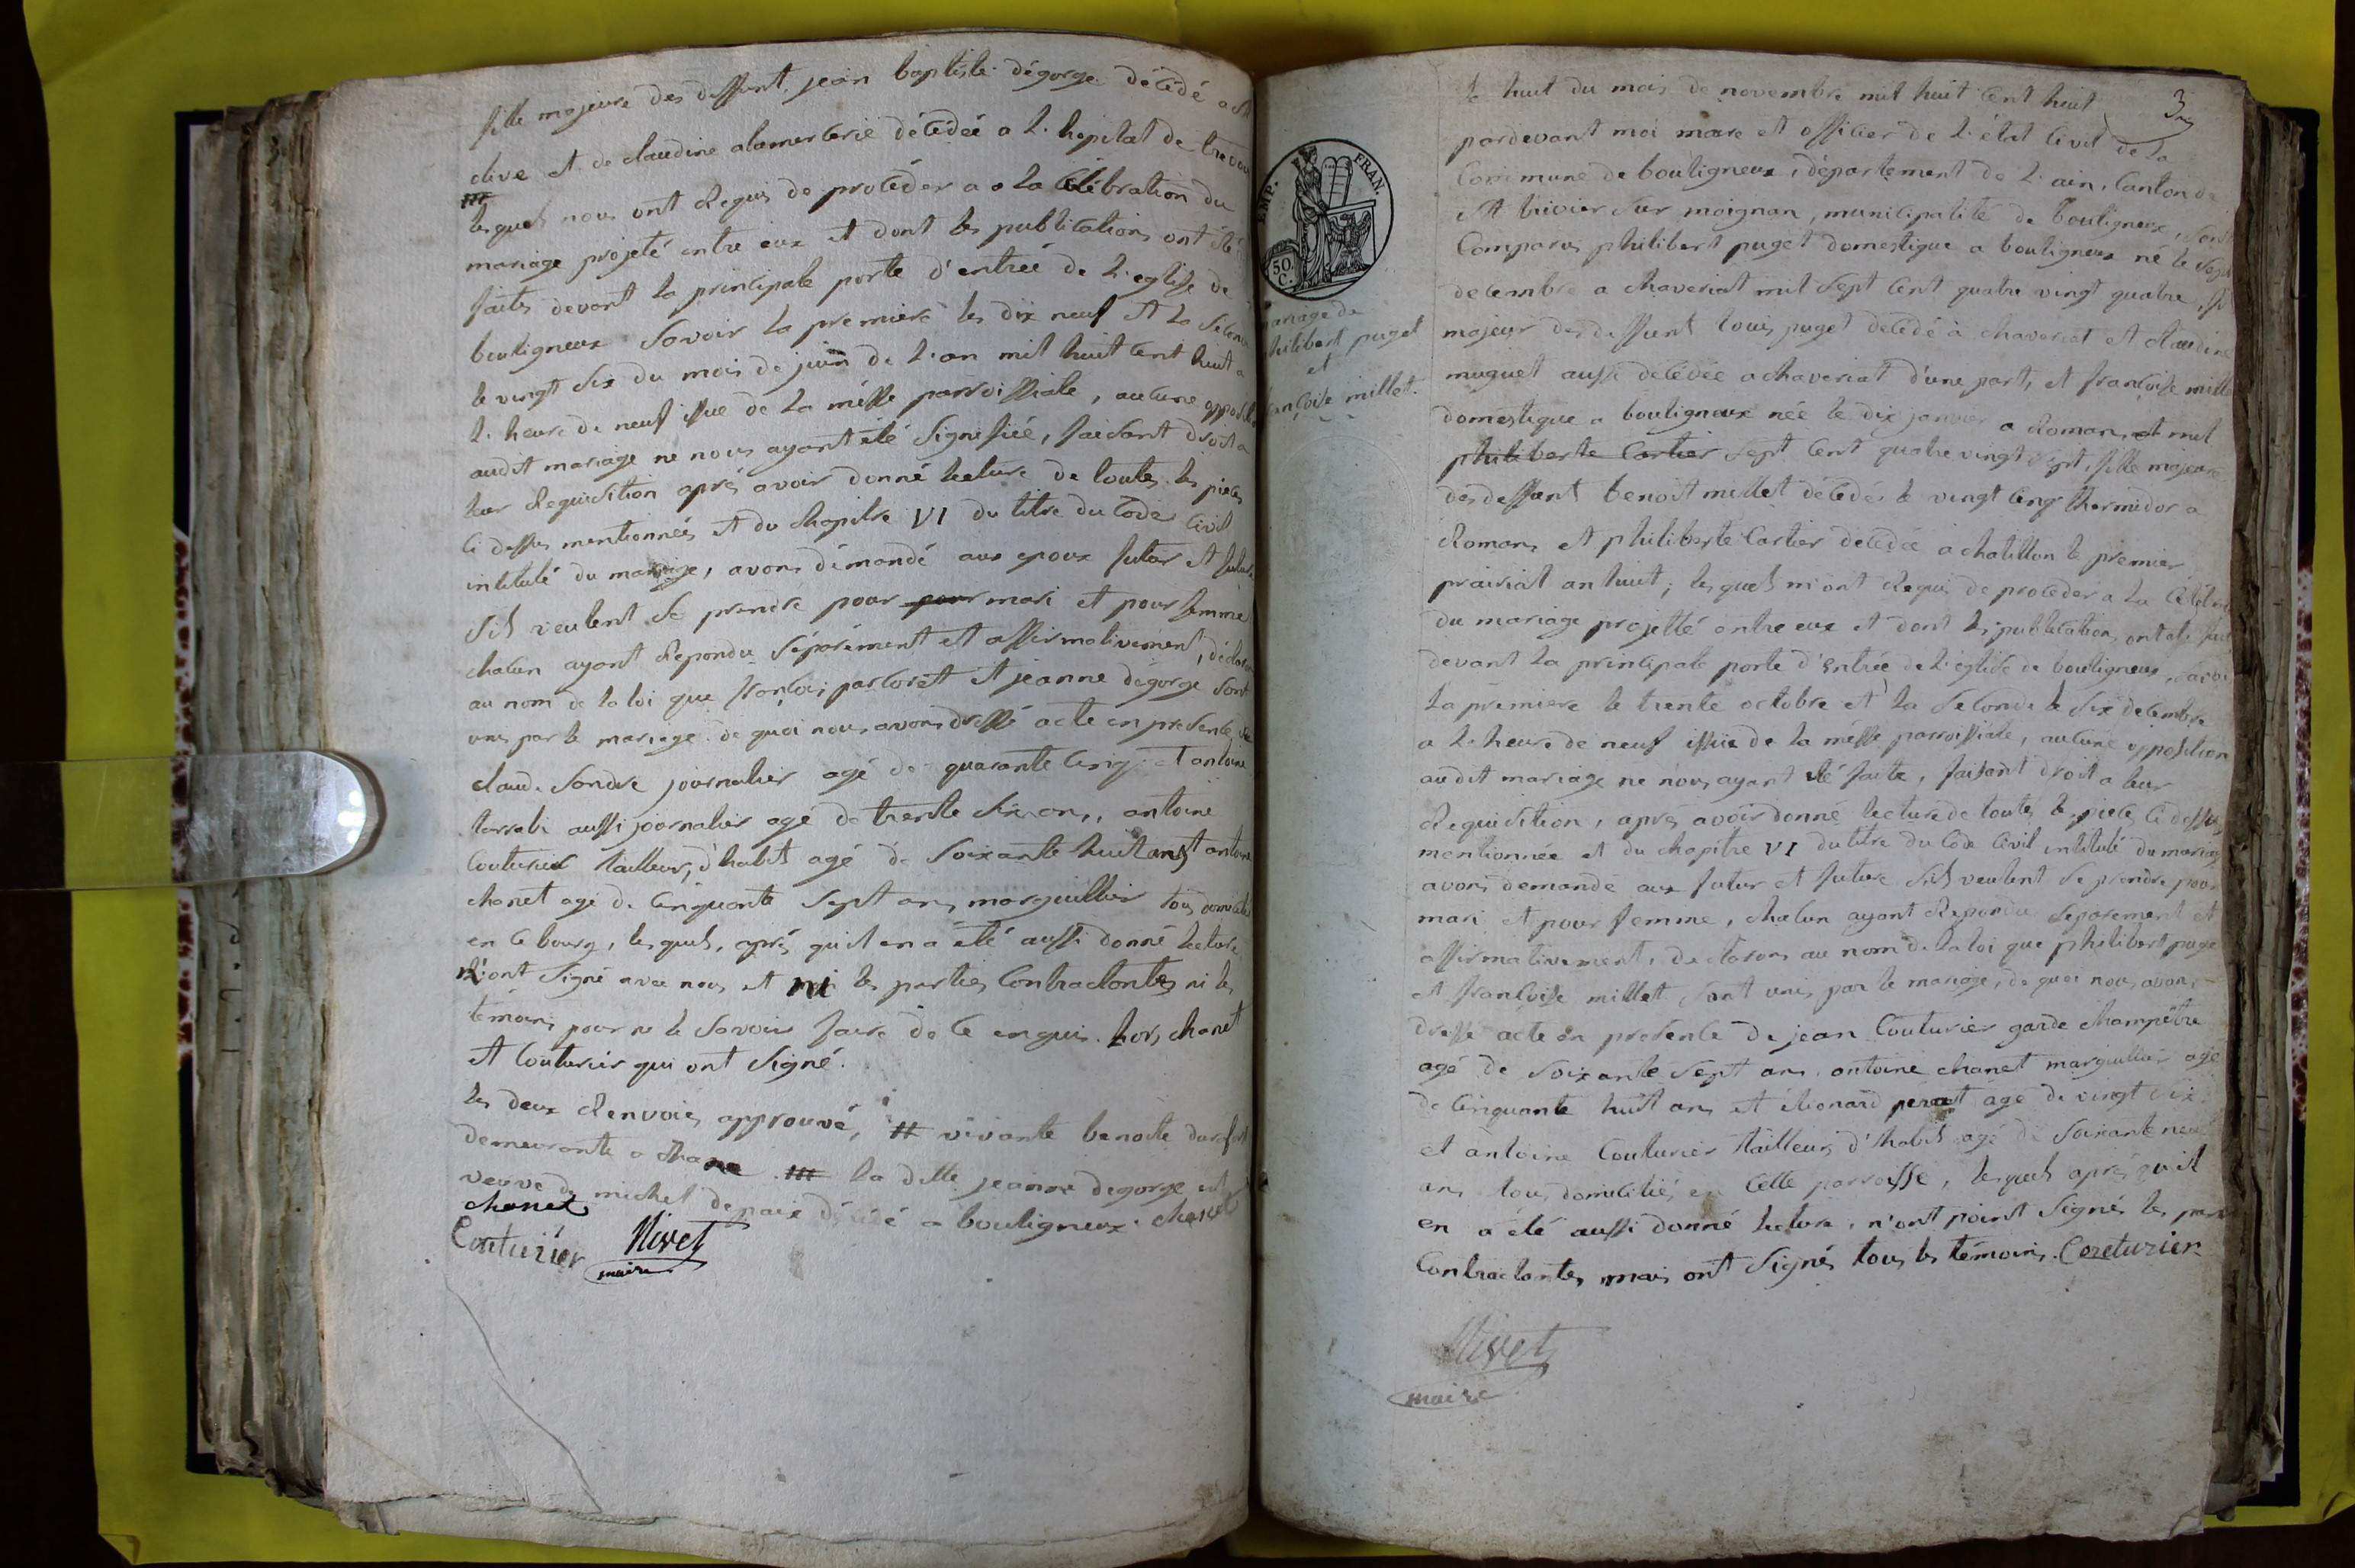 fille majeure des deffunt jean baptiste dégorge décédé a St
olive et de claudine alamerlerie décédée a l'hopital de trevoux
###
lesquels nous ont Requis de procéder a a la Célébration du
mariage projeté entre eux et dont les publications ont été
faites devant la principale porte d'entrée de l'eglise de
bouligneux Savoir la premiere les dix neuf et la Seconde
le vingt Six du mois de juin de l'an mil huit Cent huit a
l'heure de neuf issue de la mésse parroissiale, aucune opposition
audit mariage ne nous ayant été Signifiée, faisant droit a
leur Requisition aprés avoir donné lecture de toutes les pieces
Ci dessus mentionnées et du Chapitre VI du titre du Code Civil
intitulé du mariage, avons démandé aux epoux futur et future
S'ils veulent Se prendre pour pour mari et pour femme
chacun ayant Repondu Séparément et affirmativement, déclarons
au nom de la loi que françois parloret et jeanne dégorge Sont
unis par le mariage de quoi nous avons dressé acte en presence de
claude Sondre journalier agé de quarante Cinq et antoine
tarrabi aussi journalier agé de trente Six ans, antoine
Couturier tailleur d'habit agé de Soixante huit ans et antoine
chanet agé de Cinquante Sept ans marguillier tous domiciliés
en Ce bourg, lesquels, aprés qu'il en a été aussi donné lecture
n'ont Signé avec nous et ni les parties Contractantes ni les
témoins pour ne le Savoir faire de Ce enquis. hors chanet
et Couturier qui ont Signé.
les deux Renvois approuvé, # vivante benoite durefort
demeurante a ### la ditte jeanne degorge est
veuve de michel depaix décédé a bouligneux. chanet
chanet
Couturier Nivet
maire
3
le huit du mois de novembre mil huit Cent huit
pardevant moi maire et officier de l'état Civil de la
Commune de bouligneux, département de l'ain, Canton de
St trivier Sur moignan, municipalité de bouligneux, Sont
Comparus philibert puget domestique a bouligneux né le Sept
decembre a chaveriat mil Sept Cent quatre vingt quatre, fils
majeur des deffunt louis puget décédé à chaveriat et claudine
muguet aussi décédée a chaveriat d'une part, et françoise millet
domestique a bouligneux née le dix janvier a Romans et mil
philiberte Cartier Sept Cent quatre vingt Sept, fille majeure
des deffunt benoit millet décédé le vingt Cinq thermidor a
Romans et philiberte Cartier décédée a chatillon le premier
prairial an huit; lesquels m'ont Requis de proceder a la Célébration
du mariage projetté entre eux et dont les publications ont été faites
devant la principale porte d'entrée de l'eglise de bouligneux, Savoir
la premiere le trente octobre et la Seconde le Six decembre
a l'heure de neuf issue de la mésse parroissiale, aucune opposition
audit mariage ne nous ayant été faite, faisant droit a leur
Requisition, aprés avoir donné lecture de toutes les pieces Ci dessus
mentionnée et du chapitre VI du titre du Code Civil intitulé du mariage
avons demandé aux futur et future S'ils veulent Se prendre pour
mari et pour femme, chacun ayant Repondu Separement et
affirmativement, déclarons au nom de la loi que philibert puget
et françoise millet Sont unis par le mariage, de quoi nous avons
dressé acte en presence de jean Couturier garde champêtre
agé de Soixante Sept ans antoine chanet marguillier agé
de Cinquante huit ans et éléonard peraut agé de vingt Six
et antoine Couturier tailleur d'habit agé de Soixante neuf
ans tous domiciliés en Cette parroisse, lesquels aprés qu'il
en a été aussi donné lecture, n'ont point Signés les parties
Contractantes, mais ont Signés tous les témoins. Couturier
Nivet
maire
EMP. FRAN.
50.
C.
mariage de
philibert puget
et
françoise millet.